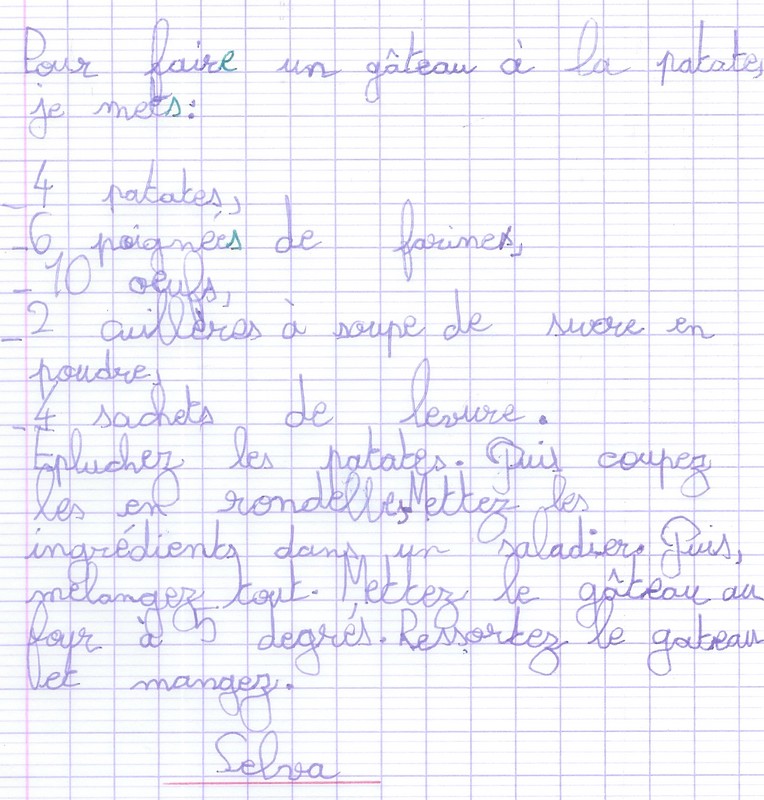 Pour faire un gâteau à la patate,
je mets:
_ 4 patates,
_ 6 poignées de farines,
_ 10 oeufs,
_ 2 cuillères à soupe de sucre en
poudre,
_ 4 sachets de levure.
Epluchez les patates. Puis coupez
les en rondelles. Mettez les
ingrédients dans un saladier. Puis,
mélangez tout. Mettez le gâteau au
four à 5 degrés. Ressortez le gateau
et mangez.
Selva